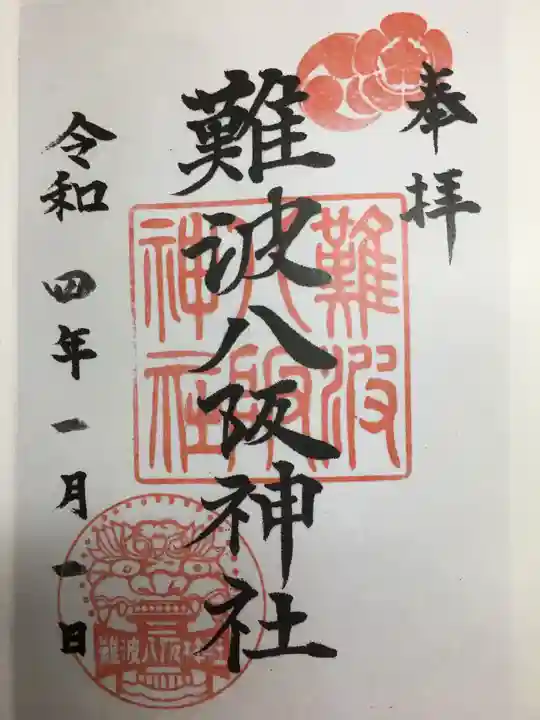 奉拝
難波八阪神社
難波
八阪
神社
令和 四年 一月 一日
難波八阪神社